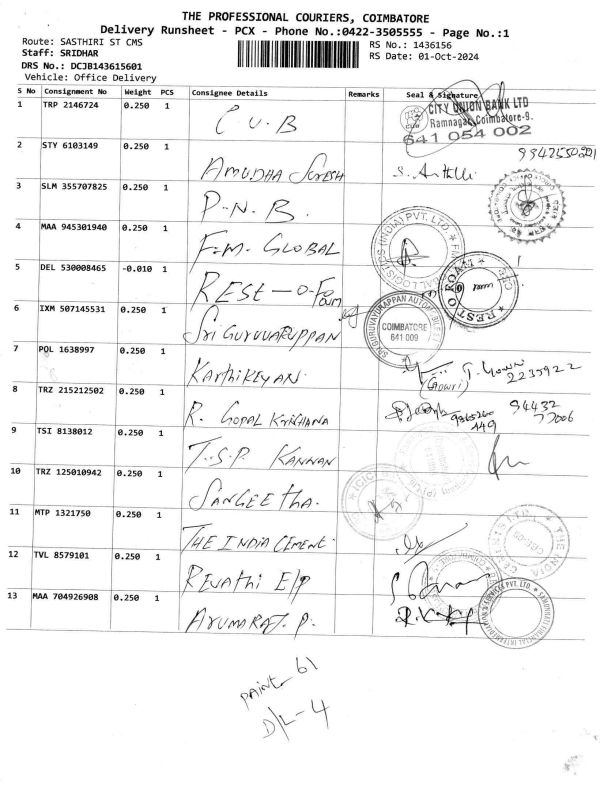 THE PROFESSIONAL COURIERS, COIMBATORE
Delivery Runsheet - PCX - Phone No.:0422-3505555 - Page No.:1
Route: SASTHIRI ST CMS
Staff: SRIDHAR
DRS No.: DCJB143615601
Vehicle: Office Delivery
RS No.: 1436156
RS Date: 01-Oct-2024
S No Consignment No Weight PCS Consignee Details Remarks Seal & Signature
1 TRP 2146724 0.250 1 C.U.B
CITY UNION BANK LTD
Ramnagar, Coimbatore-9.
641 054 002
2 STY 6103149 0.250 1 AMUDHA SURESH
3 SLM 355707825 0.250 1 P.N.B.
4 MAA 945301940 0.250 1 F.M. GLOBAL
5 DEL 530008465 -0.010 1 REST-O-Foam
6 IXM 507145531 0.250 1 Sri GURUVARUPPAN
COIMBATORE
641 009
7 POL 1638997 0.250 1 Karthikeyan
(Gowri)
2235922
8 TRZ 215212502 0.250 1 R. GOPAL KRISHANA
94432
77006
9 TSI 8138012 0.250 1 T.S.P. KANNAN
10 TRZ 125010942 0.250 1 SANGEETHA.
11 MTP 1321750 0.250 1 THE INDIA CEMENT.
12 TVL 8579101 0.250 1 REVATHI E/P
13 MAA 704926908 0.250 1 ARUMARAJ. P.
Paint 61
D/L-4